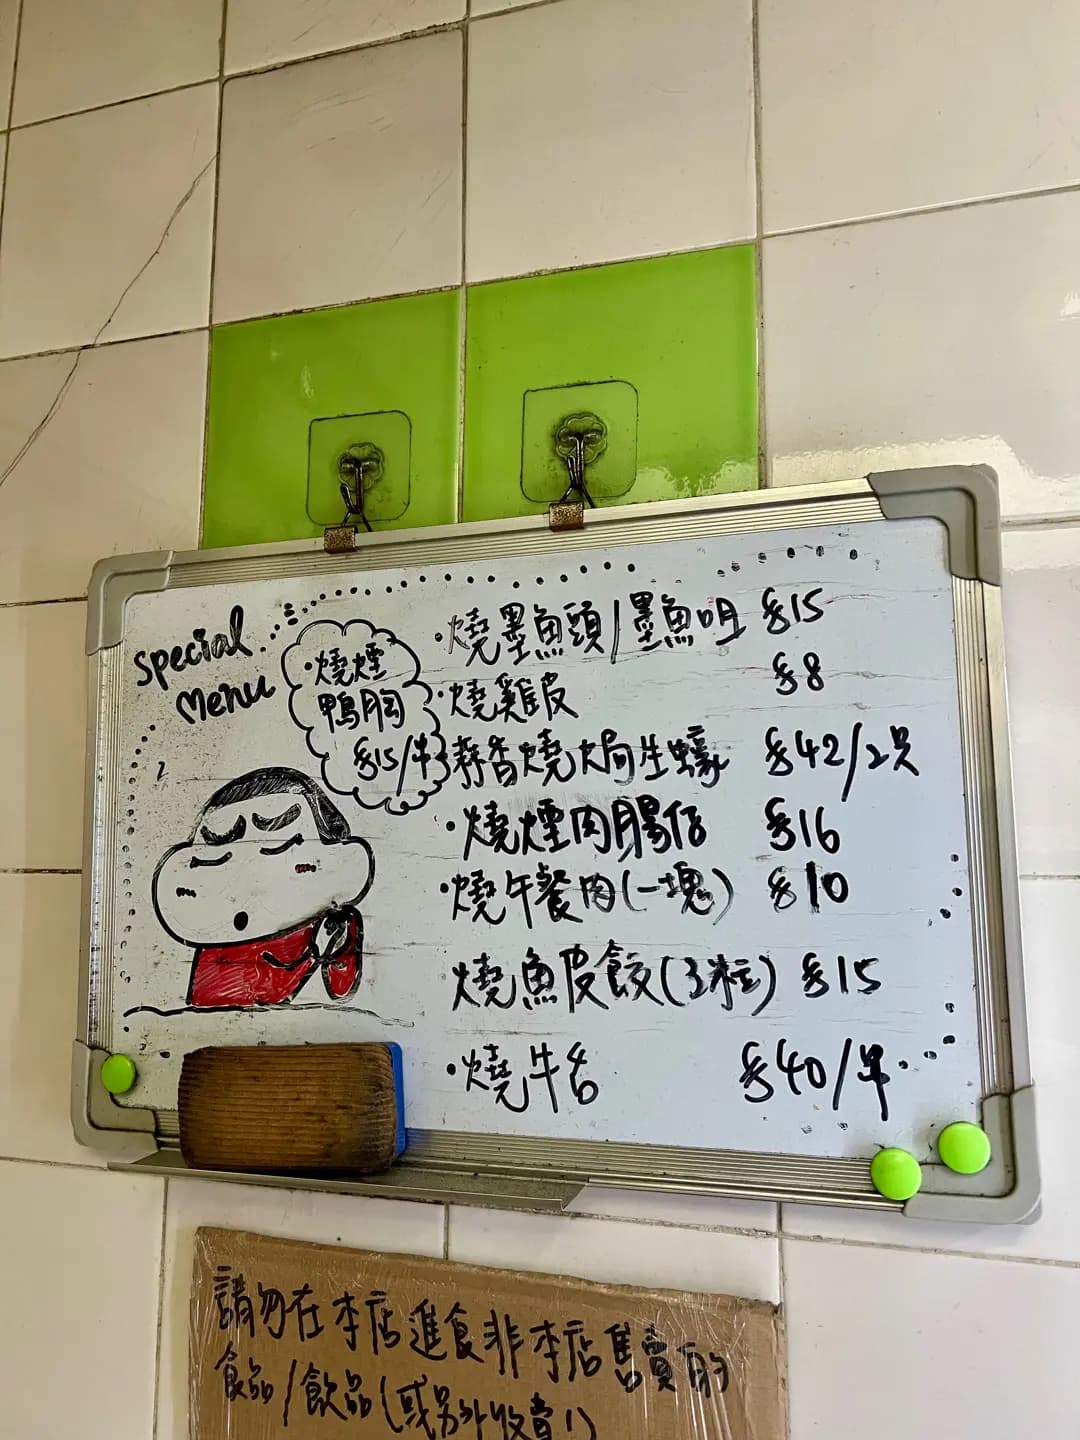 Special
Menu
·燒煙
鴨胸
$15/半
·燒墨魚頭/墨魚咀 $15
·燒雞皮 $8
蒜香燒焗生蠔 $42/2只
·燒煙肉腸仔 $16
·燒午餐肉(一塊) $10
燒魚皮餃(3粒) $15
·燒牛舌 $40/半
請勿在本店進食非本店售賣的
食品/飲品(或另外收費!)